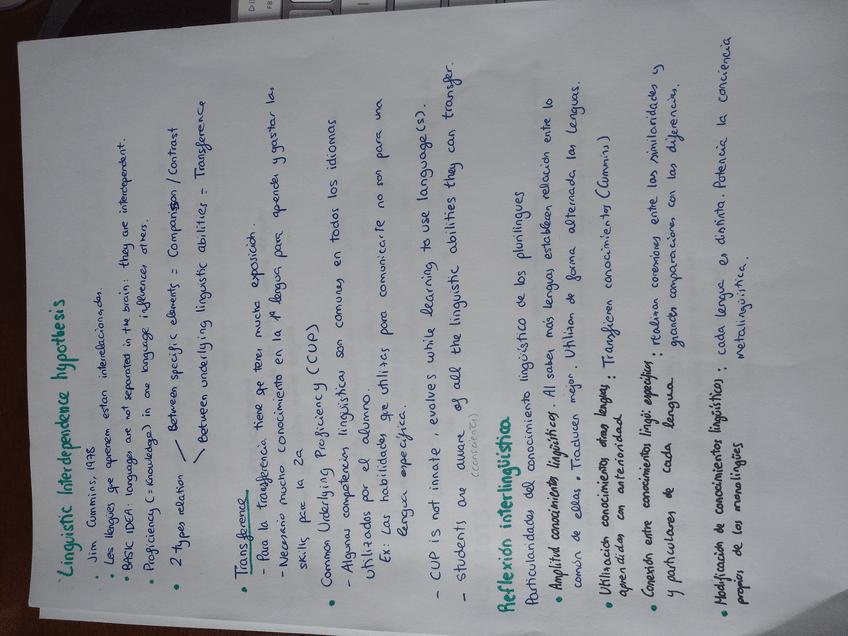 Linguistic Interdependence hypothesis
• Jim Cummins, 1978
• Les llengües que aprenem estan interrelacionades.
• BASIC IDEA: languages are not separated in the brain: they are interdependent.
• Proficiency (= Knowledge) in one language influences others.
• 2 types relation
Between specific elements = Comparison / Contrast
Between underlying linguistic abilities = Transference
• Transference
- Para la transferencia tiene que tener mucha exposición.
- Necesario mucho conocimiento en la 1ª lengua para aprender y gastar las
skills para la 2a
• Common Underlying Proficiency (CUP)
- Algunas competencias lingüísticas son comunes en todos los idiomas
utilizados por el alumno.
Ex: Las habilidades que utilizas para comunicarte no son para una
lengua específica.
- CUP is not innate, evolves while learning to use language(s).
- students are aware of all the linguistic abilities they can transfer.
(conscientes)
Reflexión interlingüística
Particularidades del conocimiento lingüístico de los plurilingues
• Amplitud conocimientos lingüísticos. Al saber más lenguas establecen relación entre lo
común de ellas. Traducen mejor. Utilizan de forma alternada las lenguas.
• Utilización conocimientos otras lenguas: Transfieren conocimientos (Cummins)
aprendidas con anterioridad
• Conexión entre conocimientos lingü. específicos: realizan conexiones entre las similaridades y
y particulares de cada lengua grandes comparaciones con las diferencias.
• Modificación de conocimientos lingüísticos: cada lengua es distinta. Potencia la conciencia
propios de los monolingües metalingüística.